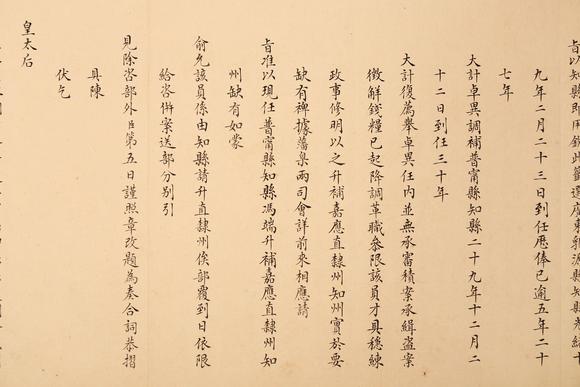 旨以知縣即用欽此籤選廣東乳源縣知縣光緒十
九年二月二十三日到任歷俸已逾五年二十
七年
大計卓異調補普甯縣知縣二十九年十二月二
十二日到任三十年
大計復薦舉卓異任內並無承審積案承緝盜案
徵解錢糧已起降調革職參限該員才具穩練
政事修明以之升補嘉應直隸州知州實於要
缺有裨據藩臬兩司會詳前來相應請
旨准以現任普甯縣知縣馮端升補嘉應直隸州知
州缺有如蒙
俞允該員係由知縣請升直隸州俟部覆到日依限
給咨併案送部分别引
見除咨部外臣第五日謹照章改題為奏合詞恭摺
具陳
伏乞
皇太后